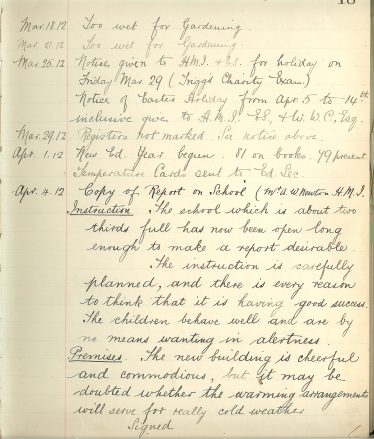 Mar. 18. 12 Too wet for Gardening.
Mar. 21. 12 Too wet for Gardening.
Mar. 25. 12 Notices given to H.M.I. & E.S. for holiday on
Friday Mar. 29 (Trigg's Charity Exam.)
Notice of Easter Holiday from Apr. 5 to 14th
inclusive given to H.M.I. E.S. & W.W.C. Esq.
Mar. 29. 12 Registers not marked. See notice above.
Apr. 1. 12 New Ed. Year begun. 81 on books. 79 present.
Temperature Cards sent to Ed. Sec.
Apr. 4. 12 Copy of Report on School (Mr A. W. Newton. H.M.I.
Instruction The school which is about two
thirds full has now been open long
enough to make a report desirable.
The instruction is carefully
planned, and there is every reason
to think that it is having good success.
The children behave well and are by
no means wanting in alertness.
Premises. The new building is cheerful
and commodious, but it may be
doubted whether the warming arrangements
will serve for really cold weather
Signed